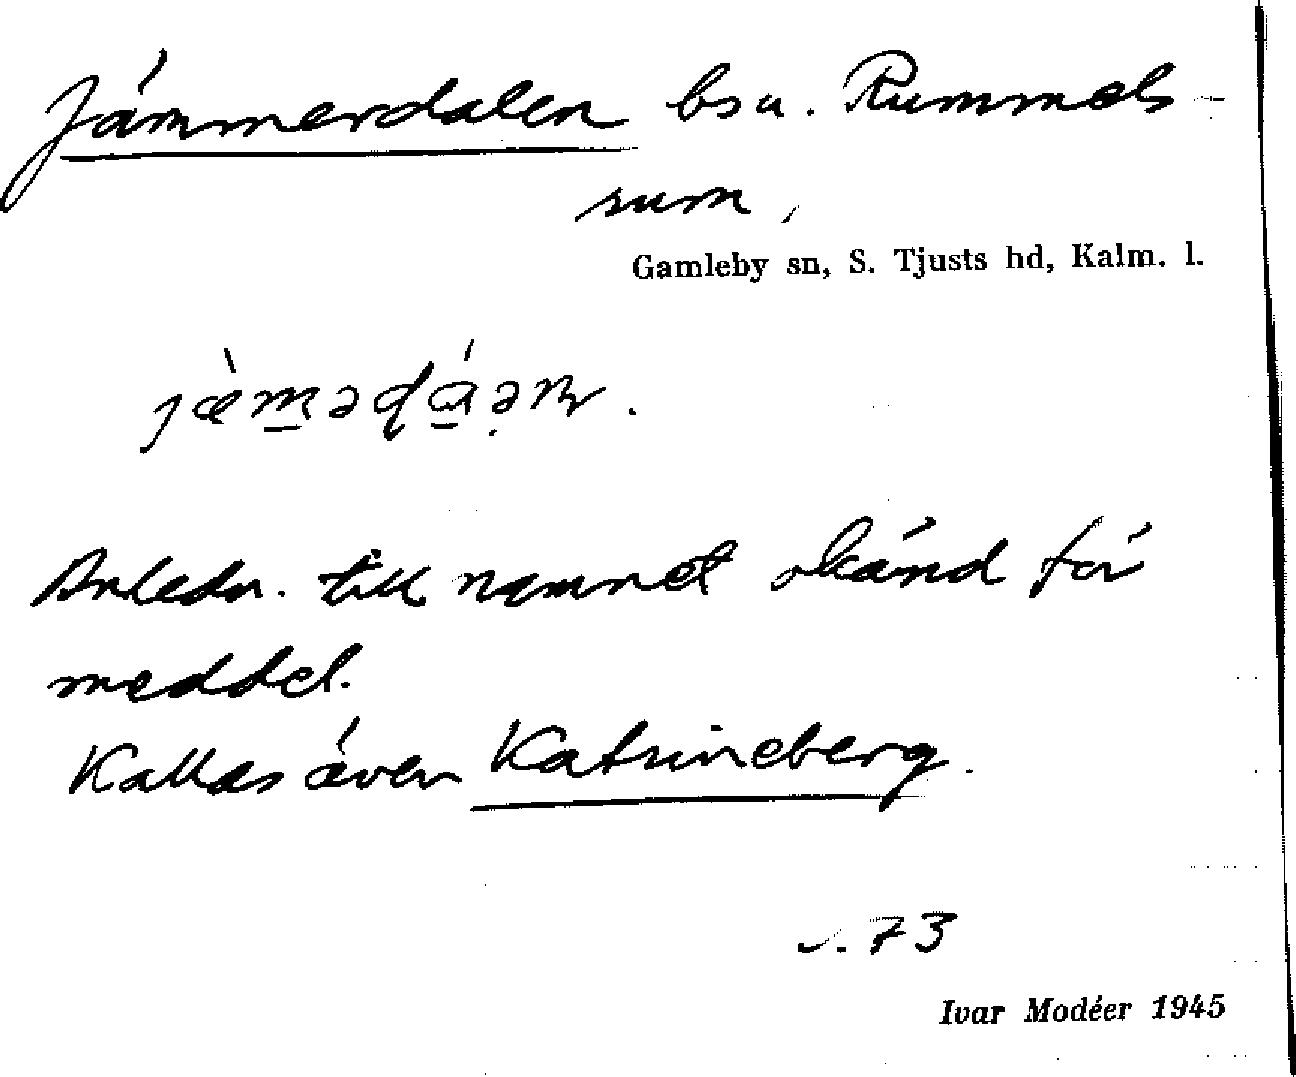 Jämmerdalen bsu. Rummels-
rum,
Gamleby sn, S. Tjusts hd, Kalm. l.
Anledn. till namnet okänd för
meddel.
Kallas även Katrineberg.
s. 73
Ivar Modéer 1945